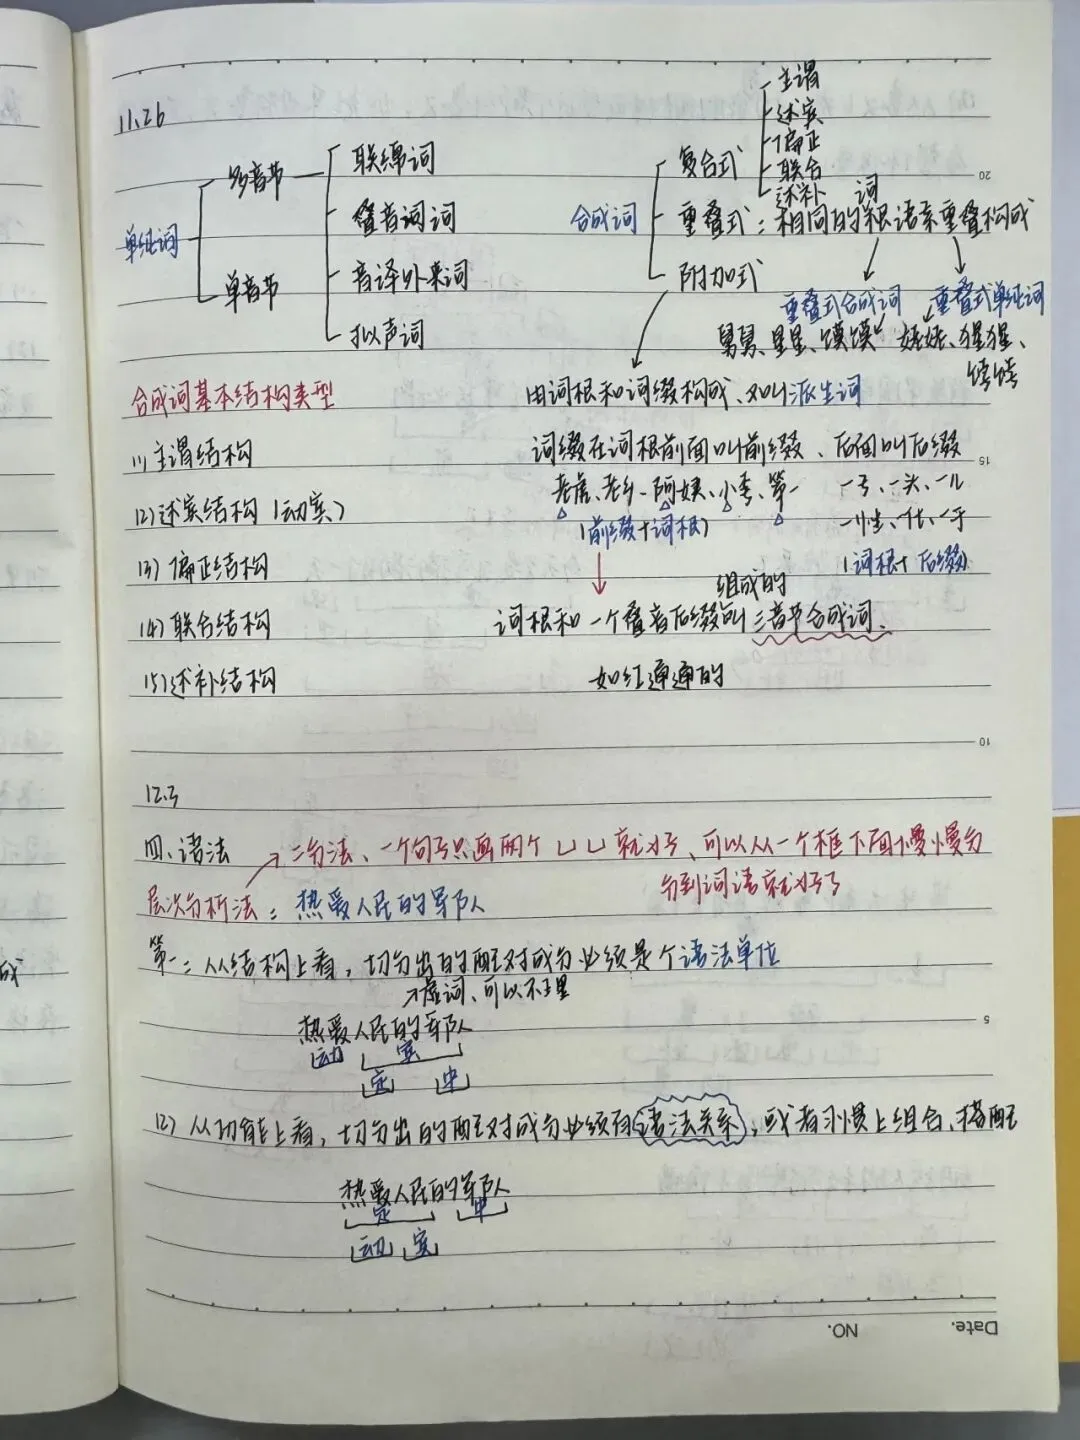 11.26
单纯词
多音节
单音节
联绵词
叠音词词
音译外来词
拟声词
合成词
复合式
主谓
述宾
偏正
联合
述补
重叠式：相同的词根语素重叠构成
附加式
重叠式合成词
重叠式单纯词
舅舅、星星、馍馍
姥姥、猩猩、
饽饽
合成词基本结构类型
由词根和词缀构成、又叫派生词
(1)主谓结构
词缀在词根前面叫前缀、后面叫后缀
(2)述宾结构(动宾)
老虎、老乡、阿姨、小李、第一
一子、一头、一儿
(前缀+词根)
一性、一化、一于
(3)偏正结构
(词根+后缀)
(4)联合结构
词根和一个叠音后缀组成的叫三音节合成词、
(5)述补结构
如红通通的
12.3
四、语法
二分法、一个句子只画两个凵凵就好了、可以从一个框下面慢慢分
分到词语就好了
层次分析法：热爱人民的军队
第一：从结构上看，切分出的配对成分必须是个语法单位
虚词、可以不管
热爱人民的军队
动 宾
定 中
(2)从功能上看，切分出的配对成分必须有语法关系，或者习惯上组合、搭配
热爱人民的军队
定 中
动 宾
Date.
NO.
20
15
10
5